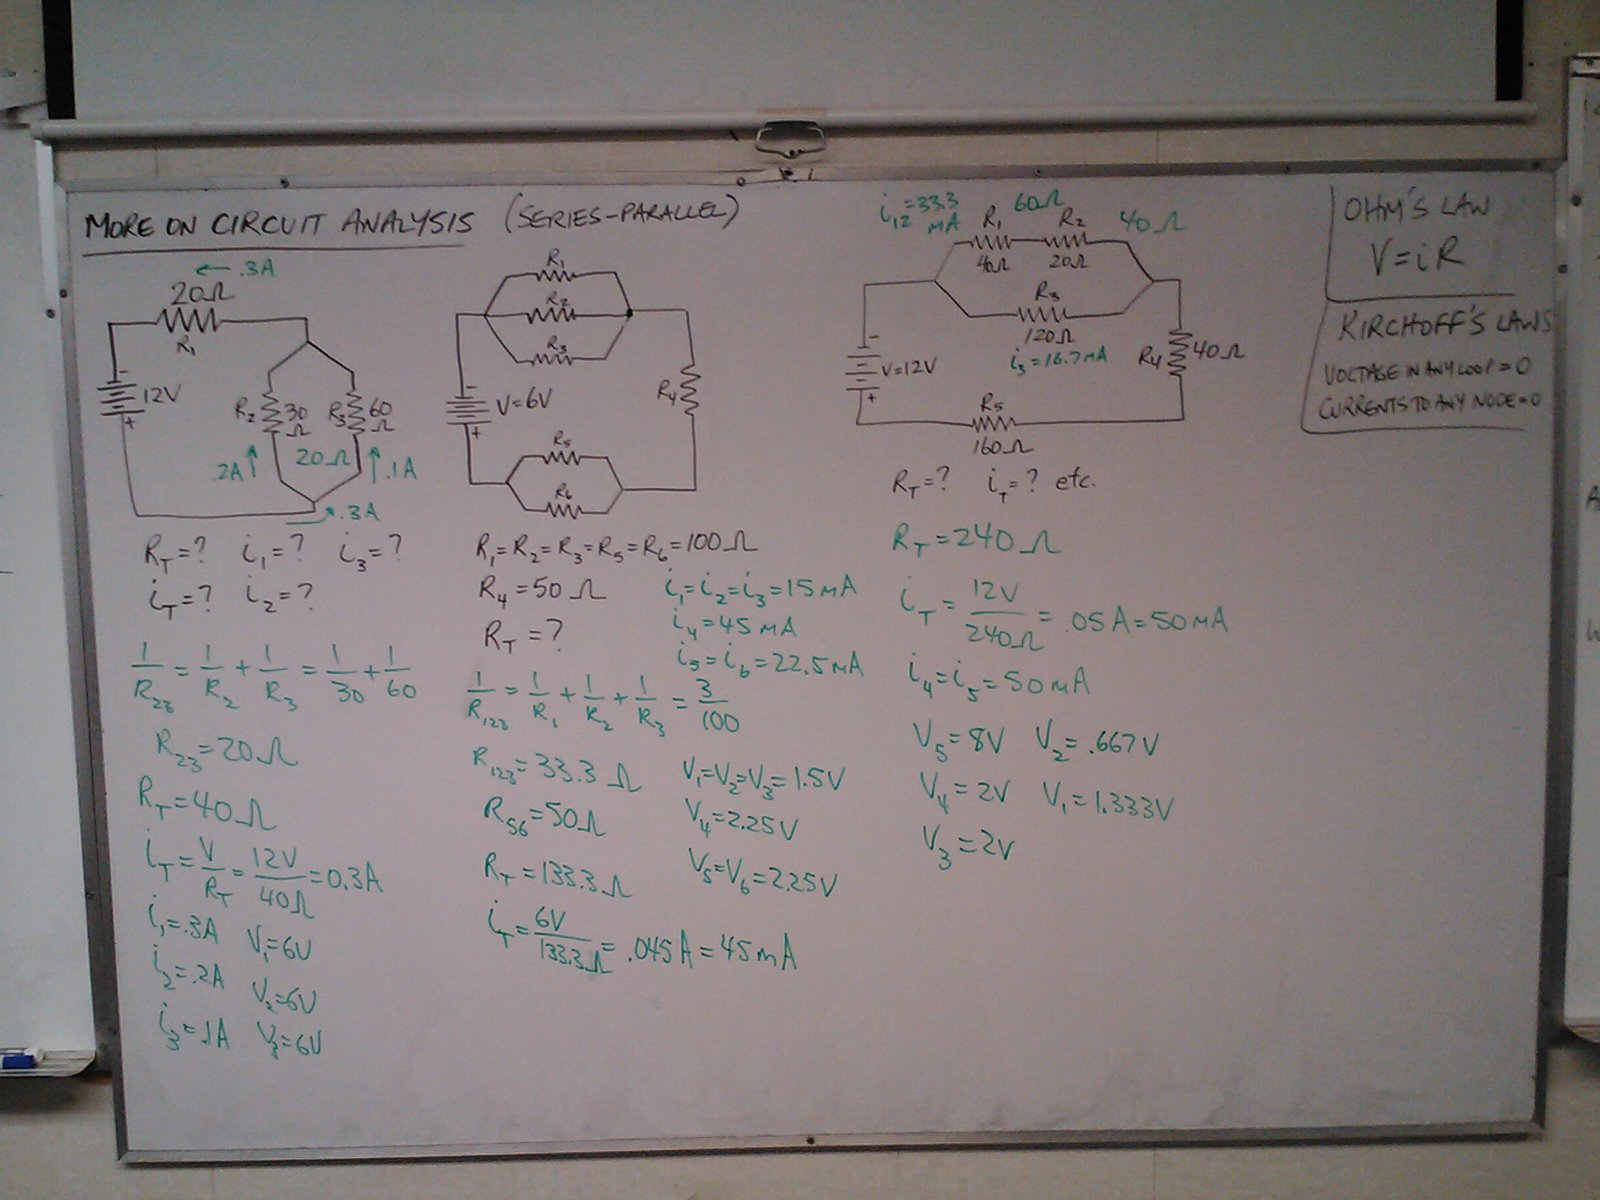 MORE ON CIRCUIT ANALYSIS (SERIES-PARALLEL)
← .3A
20Ω
R₁
12V
+
R₂ 30 Ω
R₃ 60 Ω
.2A ↑ 20Ω ↑ .1A
.3A
R_T=? i₁=? i₃=?
i_T=? i₂=?
1/R₂₃ = 1/R₂ + 1/R₃ = 1/30 + 1/60
R₂₃=20Ω
R_T=40Ω
i_T = V/R_T = 12V/40Ω = 0.3A
i₁=.3A V₁=6V
i₂=.2A V₂=6V
i₃=.1A V₃=6V
R₁
R₂
R₃
R₄
V=6V
+
R₅
R₆
R₁=R₂=R₃=R₅=R₆=100Ω
R₄=50Ω
R_T=?
i₁=i₂=i₃=15mA
i₄=45mA
i₅=i₆=22.5mA
1/R₁₂₃ = 1/R₁ + 1/R₂ + 1/R₃ = 3/100
R₁₂₃=33.3Ω
R₅₆=50Ω
R_T=133.3Ω
V₁=V₂=V₃=1.5V
V₄=2.25V
V₅=V₆=2.25V
i_T = 6V/133.3Ω = .045A = 45mA
i₁₂=33.3 mA
R₁ 60Ω R₂ 40Ω
40Ω 20Ω
R₃
120Ω
i₃=16.7mA
V=12V
+
R₄ 40Ω
R₅
160Ω
R_T=? i_T=? etc.
R_T=240Ω
i_T = 12V/240Ω = .05A = 50mA
i₄=i₅=50mA
V₅=8V V₂=.667V
V₄=2V V₁=1.333V
V₃=2V
OHM'S LAW
V=iR
KIRCHOFF'S LAWS
VOLTAGE IN ANY LOOP=0
CURRENTS TO ANY NODE=0